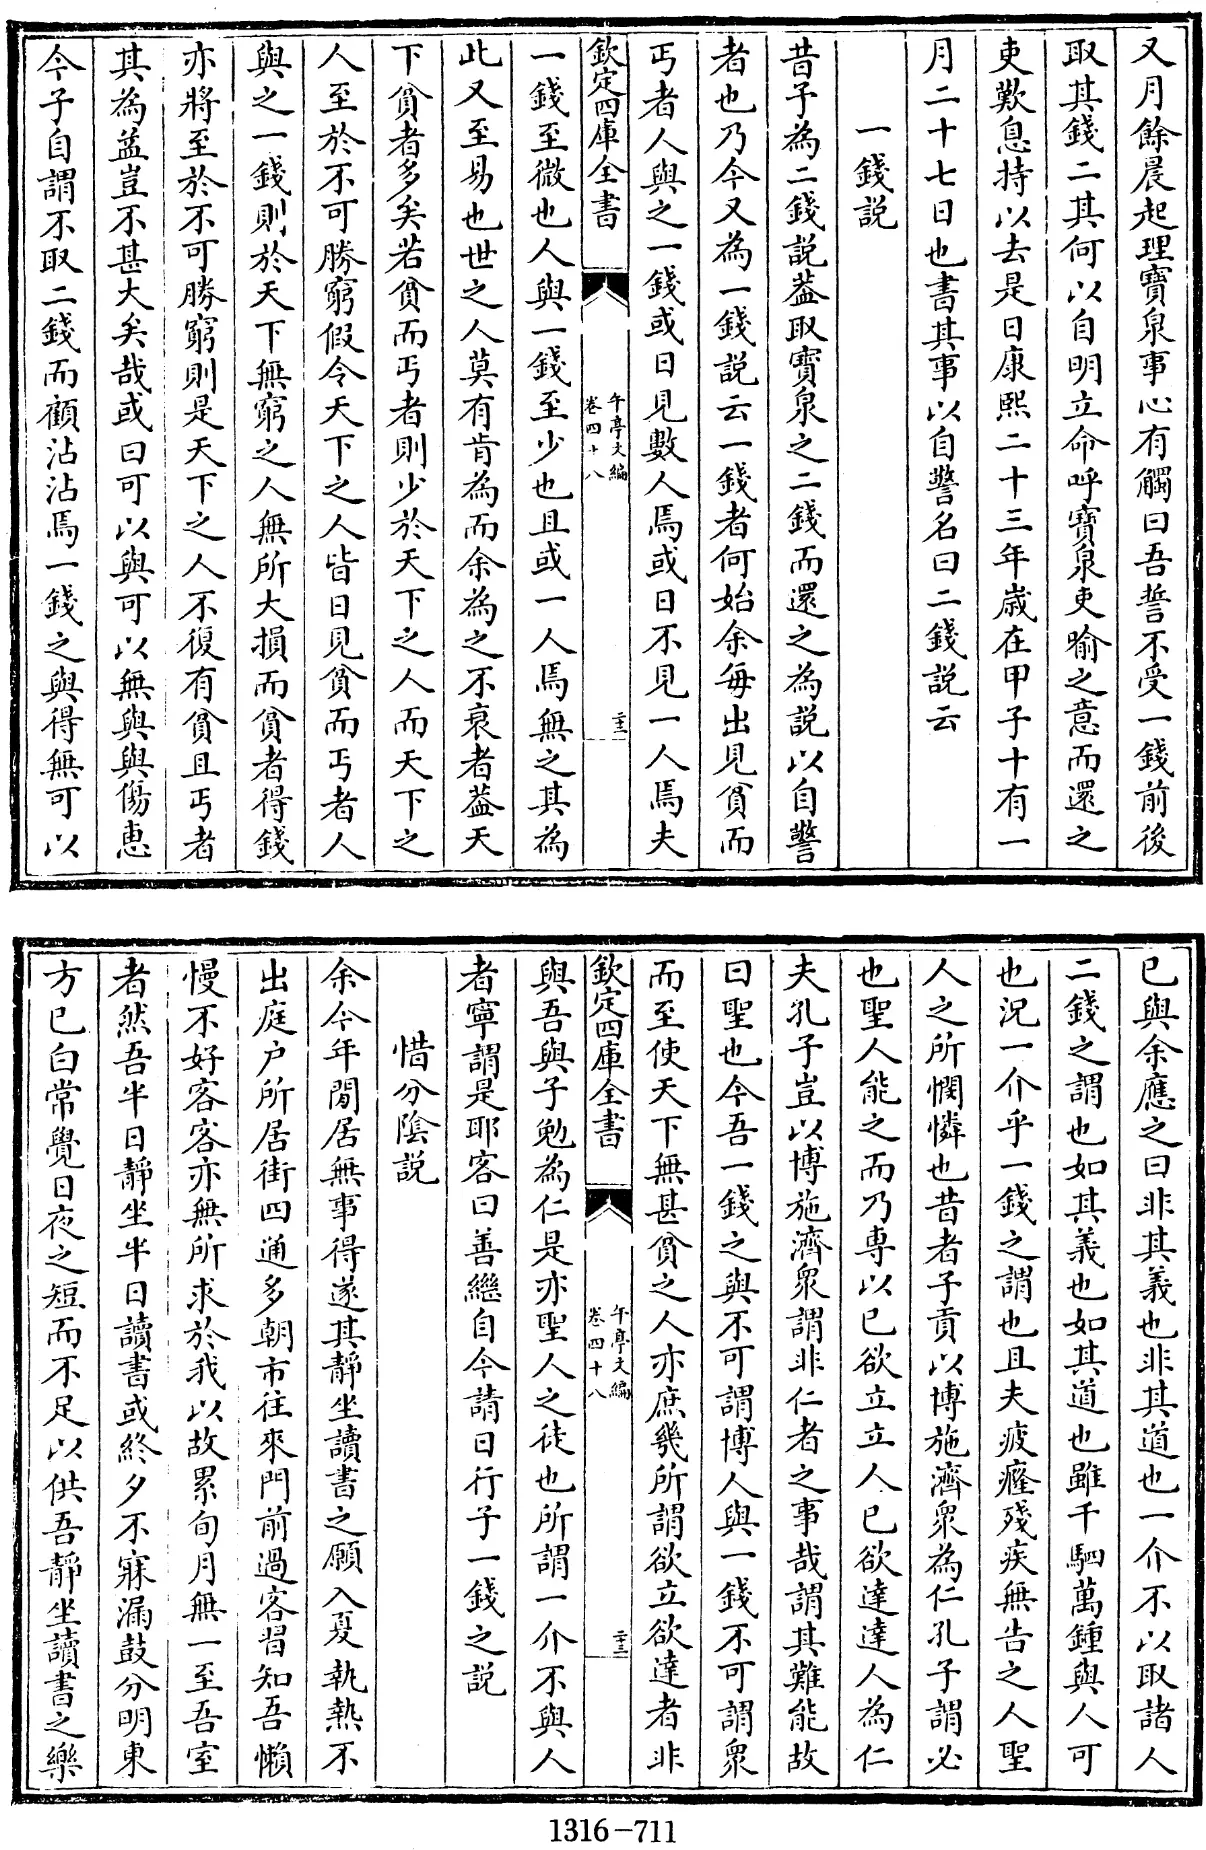 又月餘晨起理寶泉事心有觸曰吾誓不受一錢前後
取其錢二其何以自明立命呼寶泉吏喻之意而還之
吏歎息持以去是日康熙二十三年歲在甲子十有一
月二十七日也書其事以自警名曰二錢説云
一錢説
昔予為二錢説葢取寶泉之二錢而還之為説以自警
者也乃今又為一錢説云一錢者何始余每出見貧而
丐者人與之一錢或日見數人焉或日不見一人焉夫
欽定四庫全書
午亭文編
卷四十八
二十三
一錢至微也人與一錢至少也且或一人焉無之其為
此又至易也世之人莫有肯為而余為之不衰者葢天
下貧者多矣若貧而丐者則少於天下之人而天下之
人至於不可勝窮假令天下之人皆日見貧而丐者人
與之一錢則於天下無窮之人無所大損而貧者得錢
亦將至於不可勝窮則是天下之人不復有貧且丐者
其為益豈不甚大矣哉或曰可以與可以無與與傷恵
今子自謂不取二錢而顧沾沾焉一錢之與得無可以
已與余應之曰非其義也非其道也一介不以取諸人
二錢之謂也如其義也如其道也雖千駟萬鍾與人可
也況一介乎一錢之謂也且夫疲癃殘疾無告之人聖
人之所憫憐也昔者子貢以博施濟衆為仁孔子謂必
也聖人能之而乃専以已欲立立人已欲達達人為仁
夫孔子豈以博施濟衆謂非仁者之事哉謂其難能故
曰聖也今吾一錢之與不可謂博人與一錢不可謂衆
而至使天下無甚貧之人亦庶幾所謂欲立欲達者非
欽定四庫全書
午亭文編
卷四十八
二十三
與吾與子勉為仁是亦聖人之徒也所謂一介不與人
者寧謂是耶客曰善繼自今請日行子一錢之説
惜分隂説
余今年閒居無事得遂其靜坐讀書之願入夏執熱不
出庭户所居街四通多朝市往來門前過客習知吾懶
慢不好客客亦無所求於我以故累旬月無一至吾室
者然吾半日靜坐半日讀書或終夕不寐漏鼓分明東
方已白常覺日夜之短而不足以供吾靜坐讀書之樂
1316-711